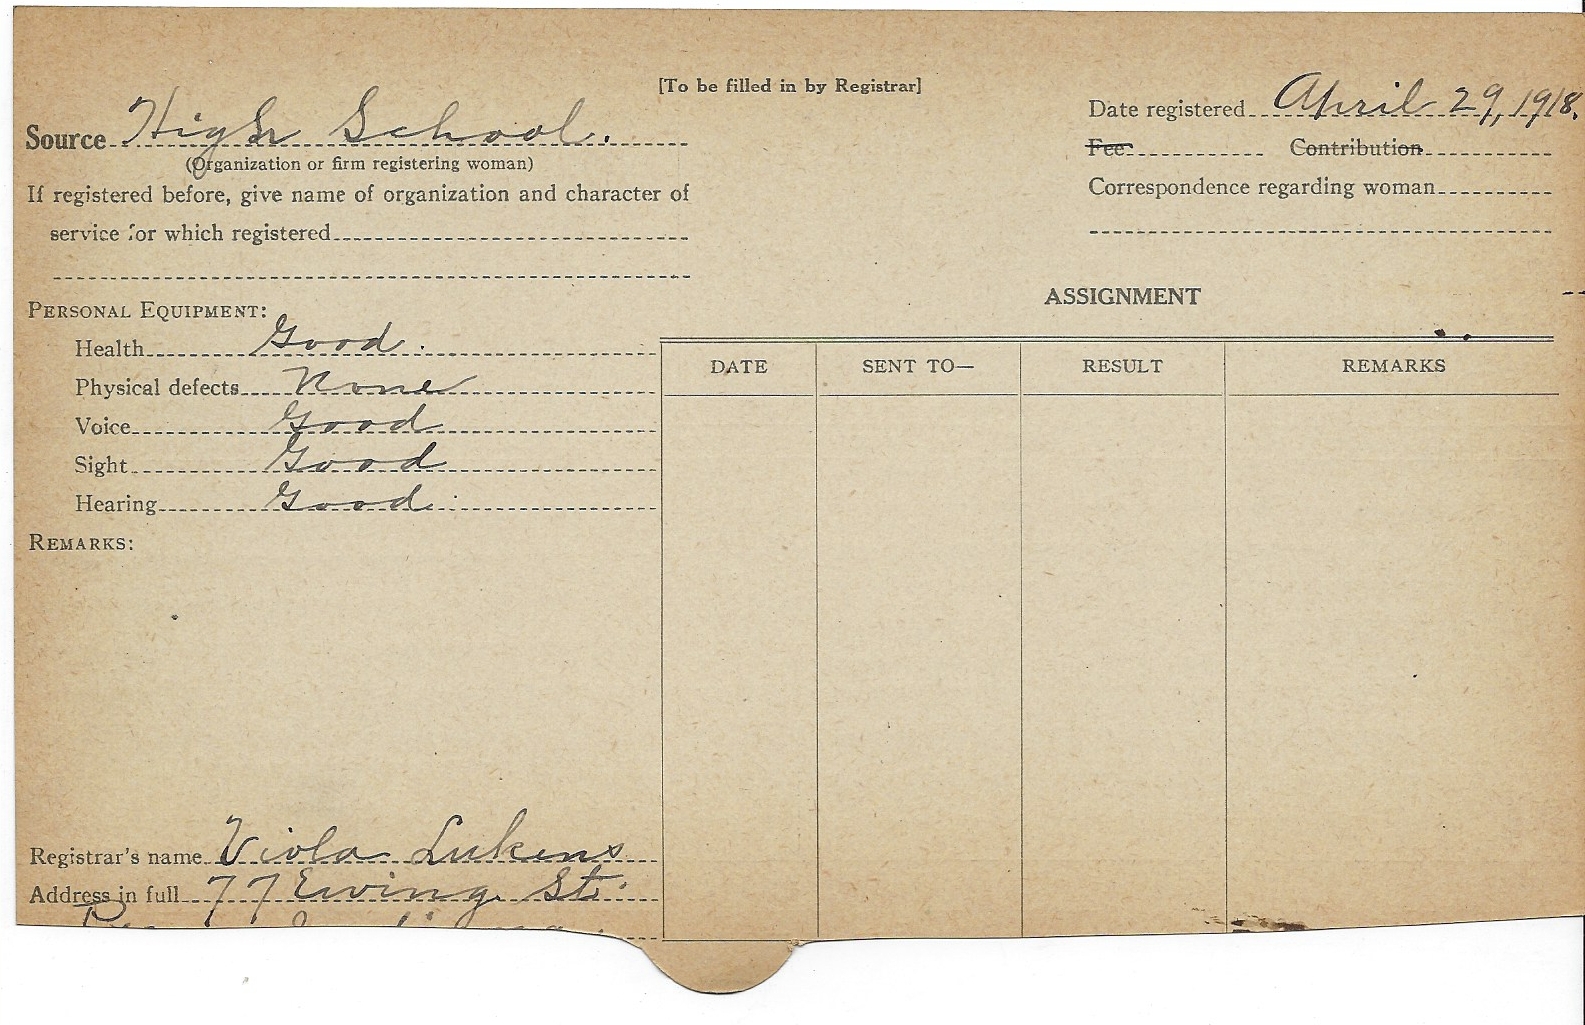 [To be filled in by Registrar]
Source High School.
(Organization or firm registering woman)
If registered before, give name of organization and character of
service for which registered
Date registered April 29, 1918.
Fee Contribution
Correspondence regarding woman
PERSONAL EQUIPMENT:
Health Good.
Physical defects None
Voice Good
Sight Good
Hearing Good.
REMARKS:
ASSIGNMENT
DATE SENT TO— RESULT REMARKS
Registrar's name Viola Lukens
Address in full 77 Ewing St.